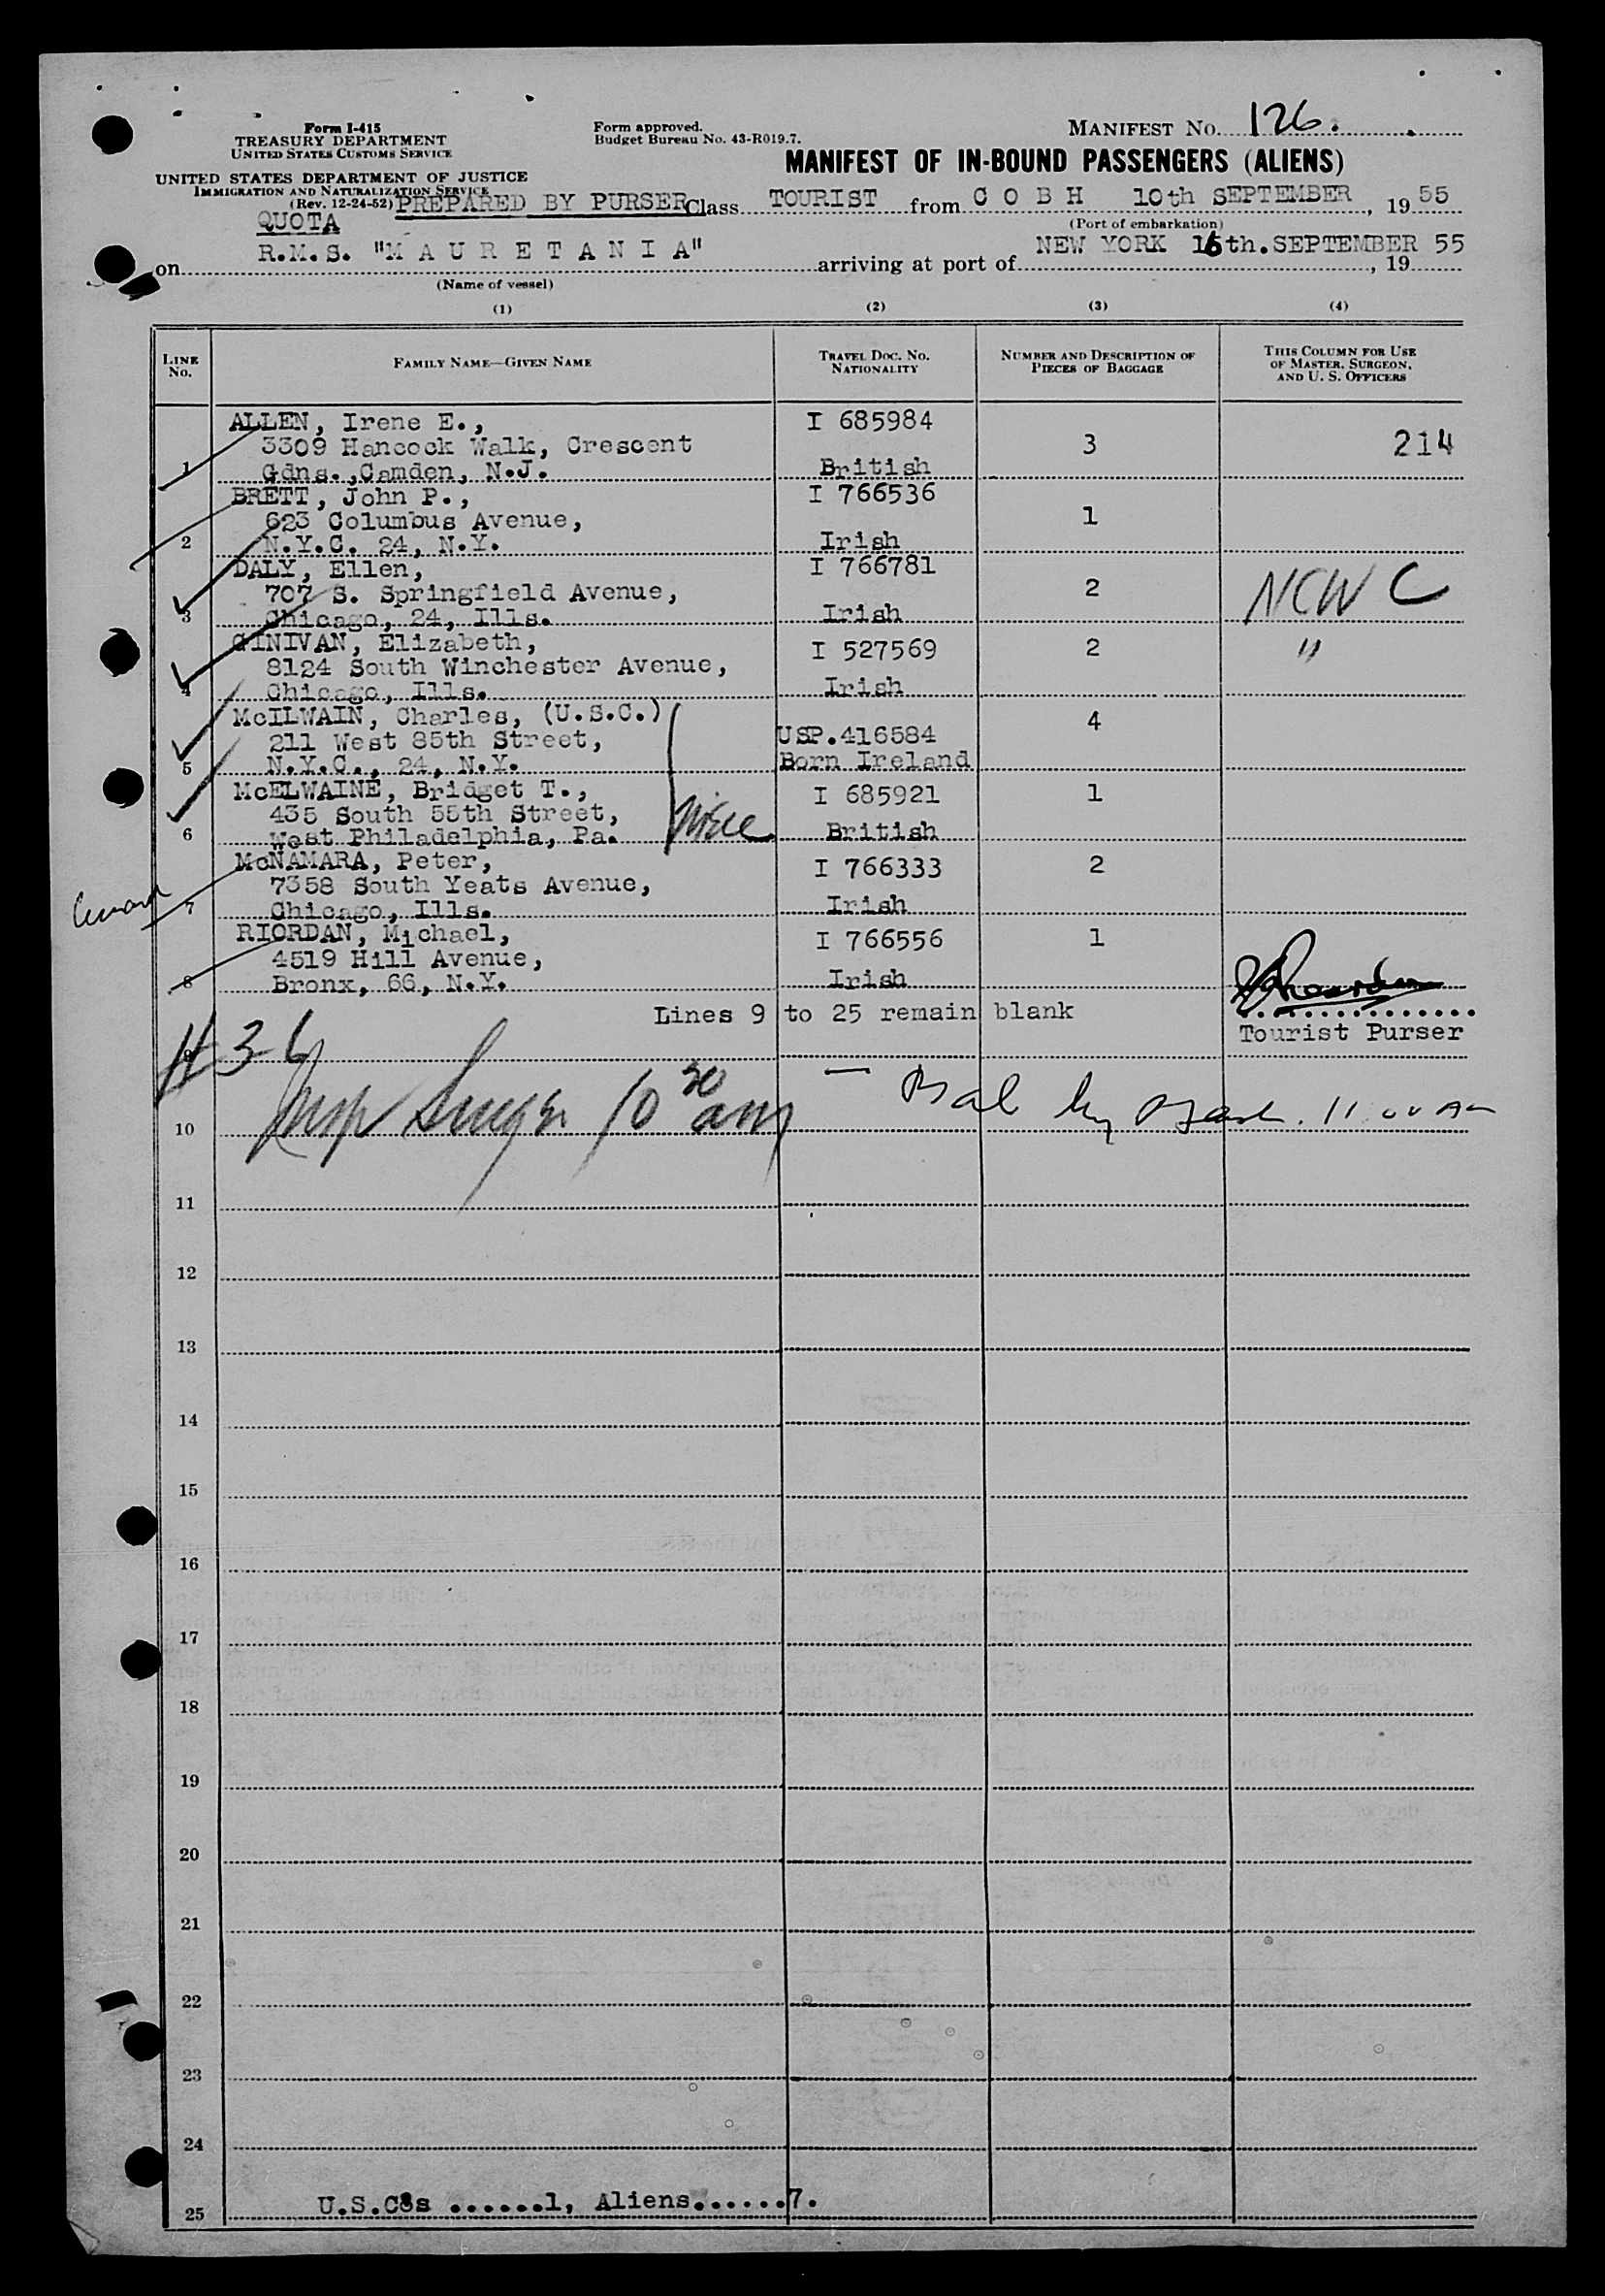 Form I-415
TREASURY DEPARTMENT
UNITED STATES CUSTOMS SERVICE
UNITED STATES DEPARTMENT OF JUSTICE
IMMIGRATION AND NATURALIZATION SERVICE
(Rev. 12-24-52)
Form approved.
Budget Bureau No. 43-R019.7.
MANIFEST NO. 126.
MANIFEST OF IN-BOUND PASSENGERS (ALIENS)
PREPARED BY PURSER Class TOURIST from C O B H 10th SEPTEMBER, 19 55
(Port of embarkation)
QUOTA
on R.M.S. "M A U R E T A N I A" arriving at port of NEW YORK 16th. SEPTEMBER, 19 55
(Name of vessel)
(1) (2) (3) (4)
LINE No. FAMILY NAME—GIVEN NAME TRAVEL DOC. NO. NATIONALITY NUMBER AND DESCRIPTION OF PIECES OF BAGGAGE THIS COLUMN FOR USE OF MASTER, SURGEON, AND U. S. OFFICERS
ALLEN, Irene E., I 685984
3309 Hancock Walk, Crescent 3 214
1 Gdns., Camden, N.J. British
BRETT, John P., I 766536
623 Columbus Avenue, 1
2 N.Y.C. 24, N.Y. Irish
DALY, Ellen, I 766781
707 S. Springfield Avenue, 2 NCWC
3 Chicago, 24, Ills. Irish
GINIVAN, Elizabeth, I 527569 2 "
8124 South Winchester Avenue,
4 Chicago, Ills. Irish
McILWAIN, Charles, (U.S.C.) 4
211 West 85th Street, USP.416584
5 N.Y.C., 24, N.Y. Born Ireland
McELWAINE, Bridget T., I 685921 1
435 South 55th Street,
6 West Philadelphia, Pa. British
McNAMARA, Peter, I 766333 2
7358 South Yeats Avenue,
7 Chicago, Ills. Irish
RIORDAN, Michael, I 766556 1
4519 Hill Avenue,
8 Bronx, 66, N.Y. Irish
Lines 9 to 25 remain blank
Tourist Purser
9
10 Insp 10 30 am — Bal by 11 00 AM
11
12
13
14
15
16
17
18
19
20
21
22
23
24
25 U.S.Cs ......1, Aliens......7.